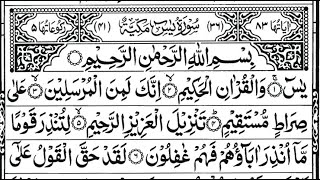 اٰيَاتُهَا ٨٣ (٣٦) سُوْرَةُ يٰسٓ مَكِّيَّةٌ (٤١) رُكُوْعَاتُهَا ٥
بِسْمِ اللّٰهِ الرَّحْمٰنِ الرَّحِيْمِ
يٰسٓ ۝١ وَالْقُرْاٰنِ الْحَكِيْمِ ۝٢ اِنَّكَ لَمِنَ الْمُرْسَلِيْنَ ۝٣ عَلٰى
صِرَاطٍ مُّسْتَقِيْمٍ ۝٤ تَنْزِيْلَ الْعَزِيْزِ الرَّحِيْمِ ۝٥ لِتُنْذِرَ قَوْمًا
مَّاۤ اُنْذِرَ اٰبَآؤُهُمْ فَهُمْ غٰفِلُوْنَ ۝٦ لَقَدْ حَقَّ الْقَوْلُ عَلٰٓى